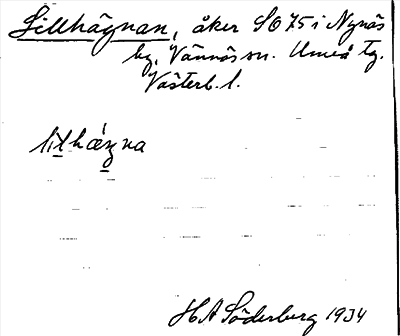 Lillhägnan, åker SO 75 i Nynäs
by, Vännäs sn. Umeå tg.
Västerb. l.
lilhæŋna
H A Söderberg 1934